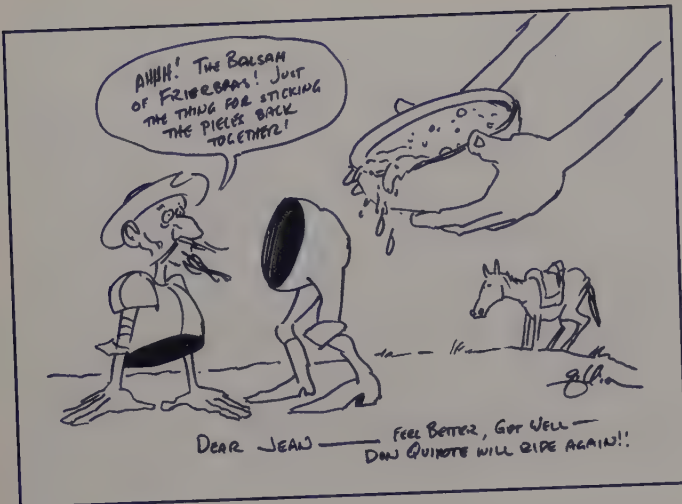 AHHH! THE BALSAM
OF FRIERBRAS! JUST
THE THING FOR STICKING
THE PIECES BACK
TOGETHER!
DEAR JEAN — FEEL BETTER, GET WELL —
DON QUIXOTE WILL RIDE AGAIN!!